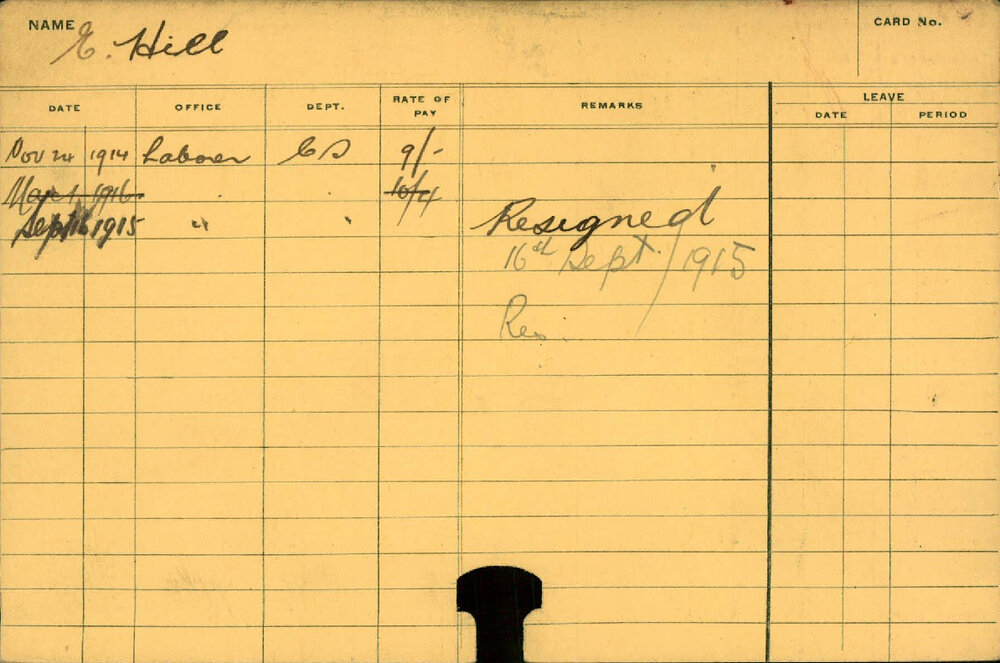 NAME E. Hill
CARD No.
DATE OFFICE DEPT. RATE OF PAY REMARKS LEAVE
DATE PERIOD
Nov 24 1914 Laborer ES 9/-
Mar 1 1916 " 10/4
Sept 16 1915 " " Resigned
16th Sept / 1915
Res.